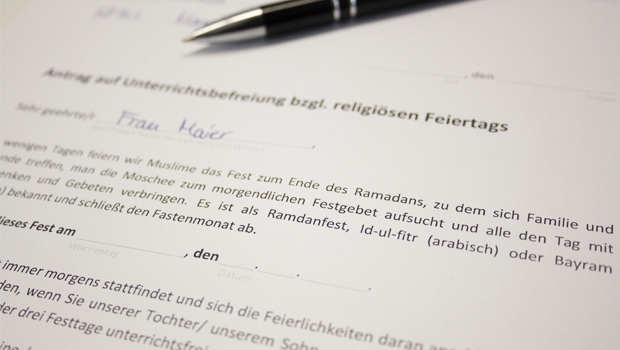 , den
Antrag auf Unterrichtsbefreiung bzgl. religiösen Feiertags
Sehr geehrte/r Frau Maier ,
wenigen Tagen feiern wir Muslime das Fest zum Ende des Ramadans, zu dem sich Familie und
nde treffen, man die Moschee zum morgendlichen Festgebet aufsucht und alle den Tag mit
enken und Gebeten verbringen. Es ist als Ramdanfest, Id-ul-fitr (arabisch) oder Bayram
) bekannt und schließt den Fastenmonat ab.
dieses Fest am , den . . .
Wochentag Datum
immer morgens stattfindet und sich die Feierlichkeiten daran
den, wenn Sie unserer Tochter/ unserem Sohn
der drei Festtage unterrichtsfrei